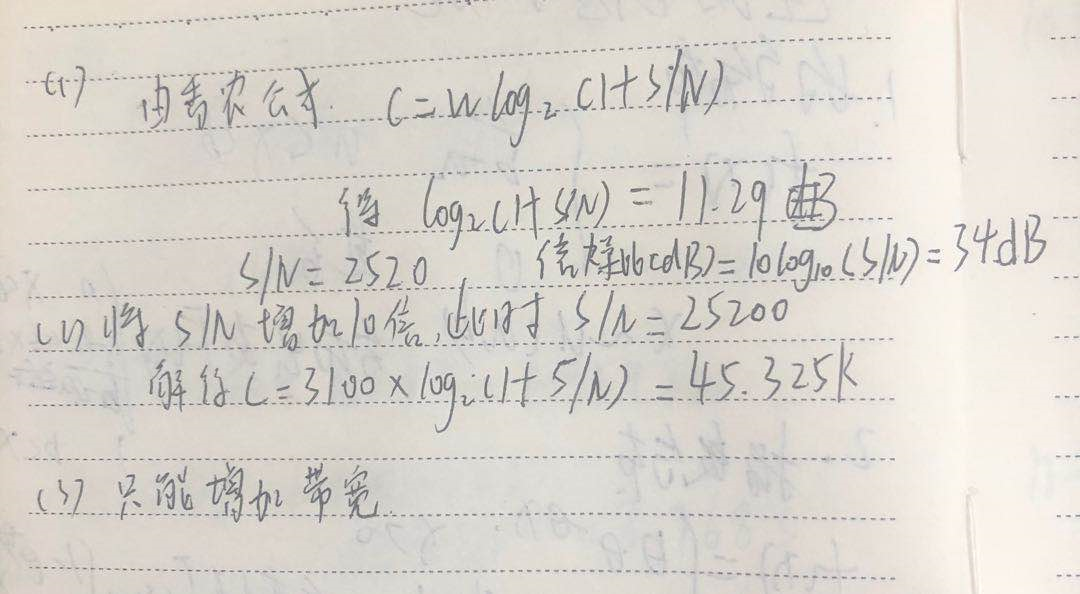 (1) 由香农公式. C=Wlog₂(1+S/N)
得 log₂(1+S/N) = 11.29
S/N = 2520 信噪比(dB)=10log₁₀(S/N)=34dB
(2) 将 S/N 增加10倍,此时 S/N=25200
解得 C=3100×log₂(1+S/N) = 45.325K
(3) 只能增加带宽